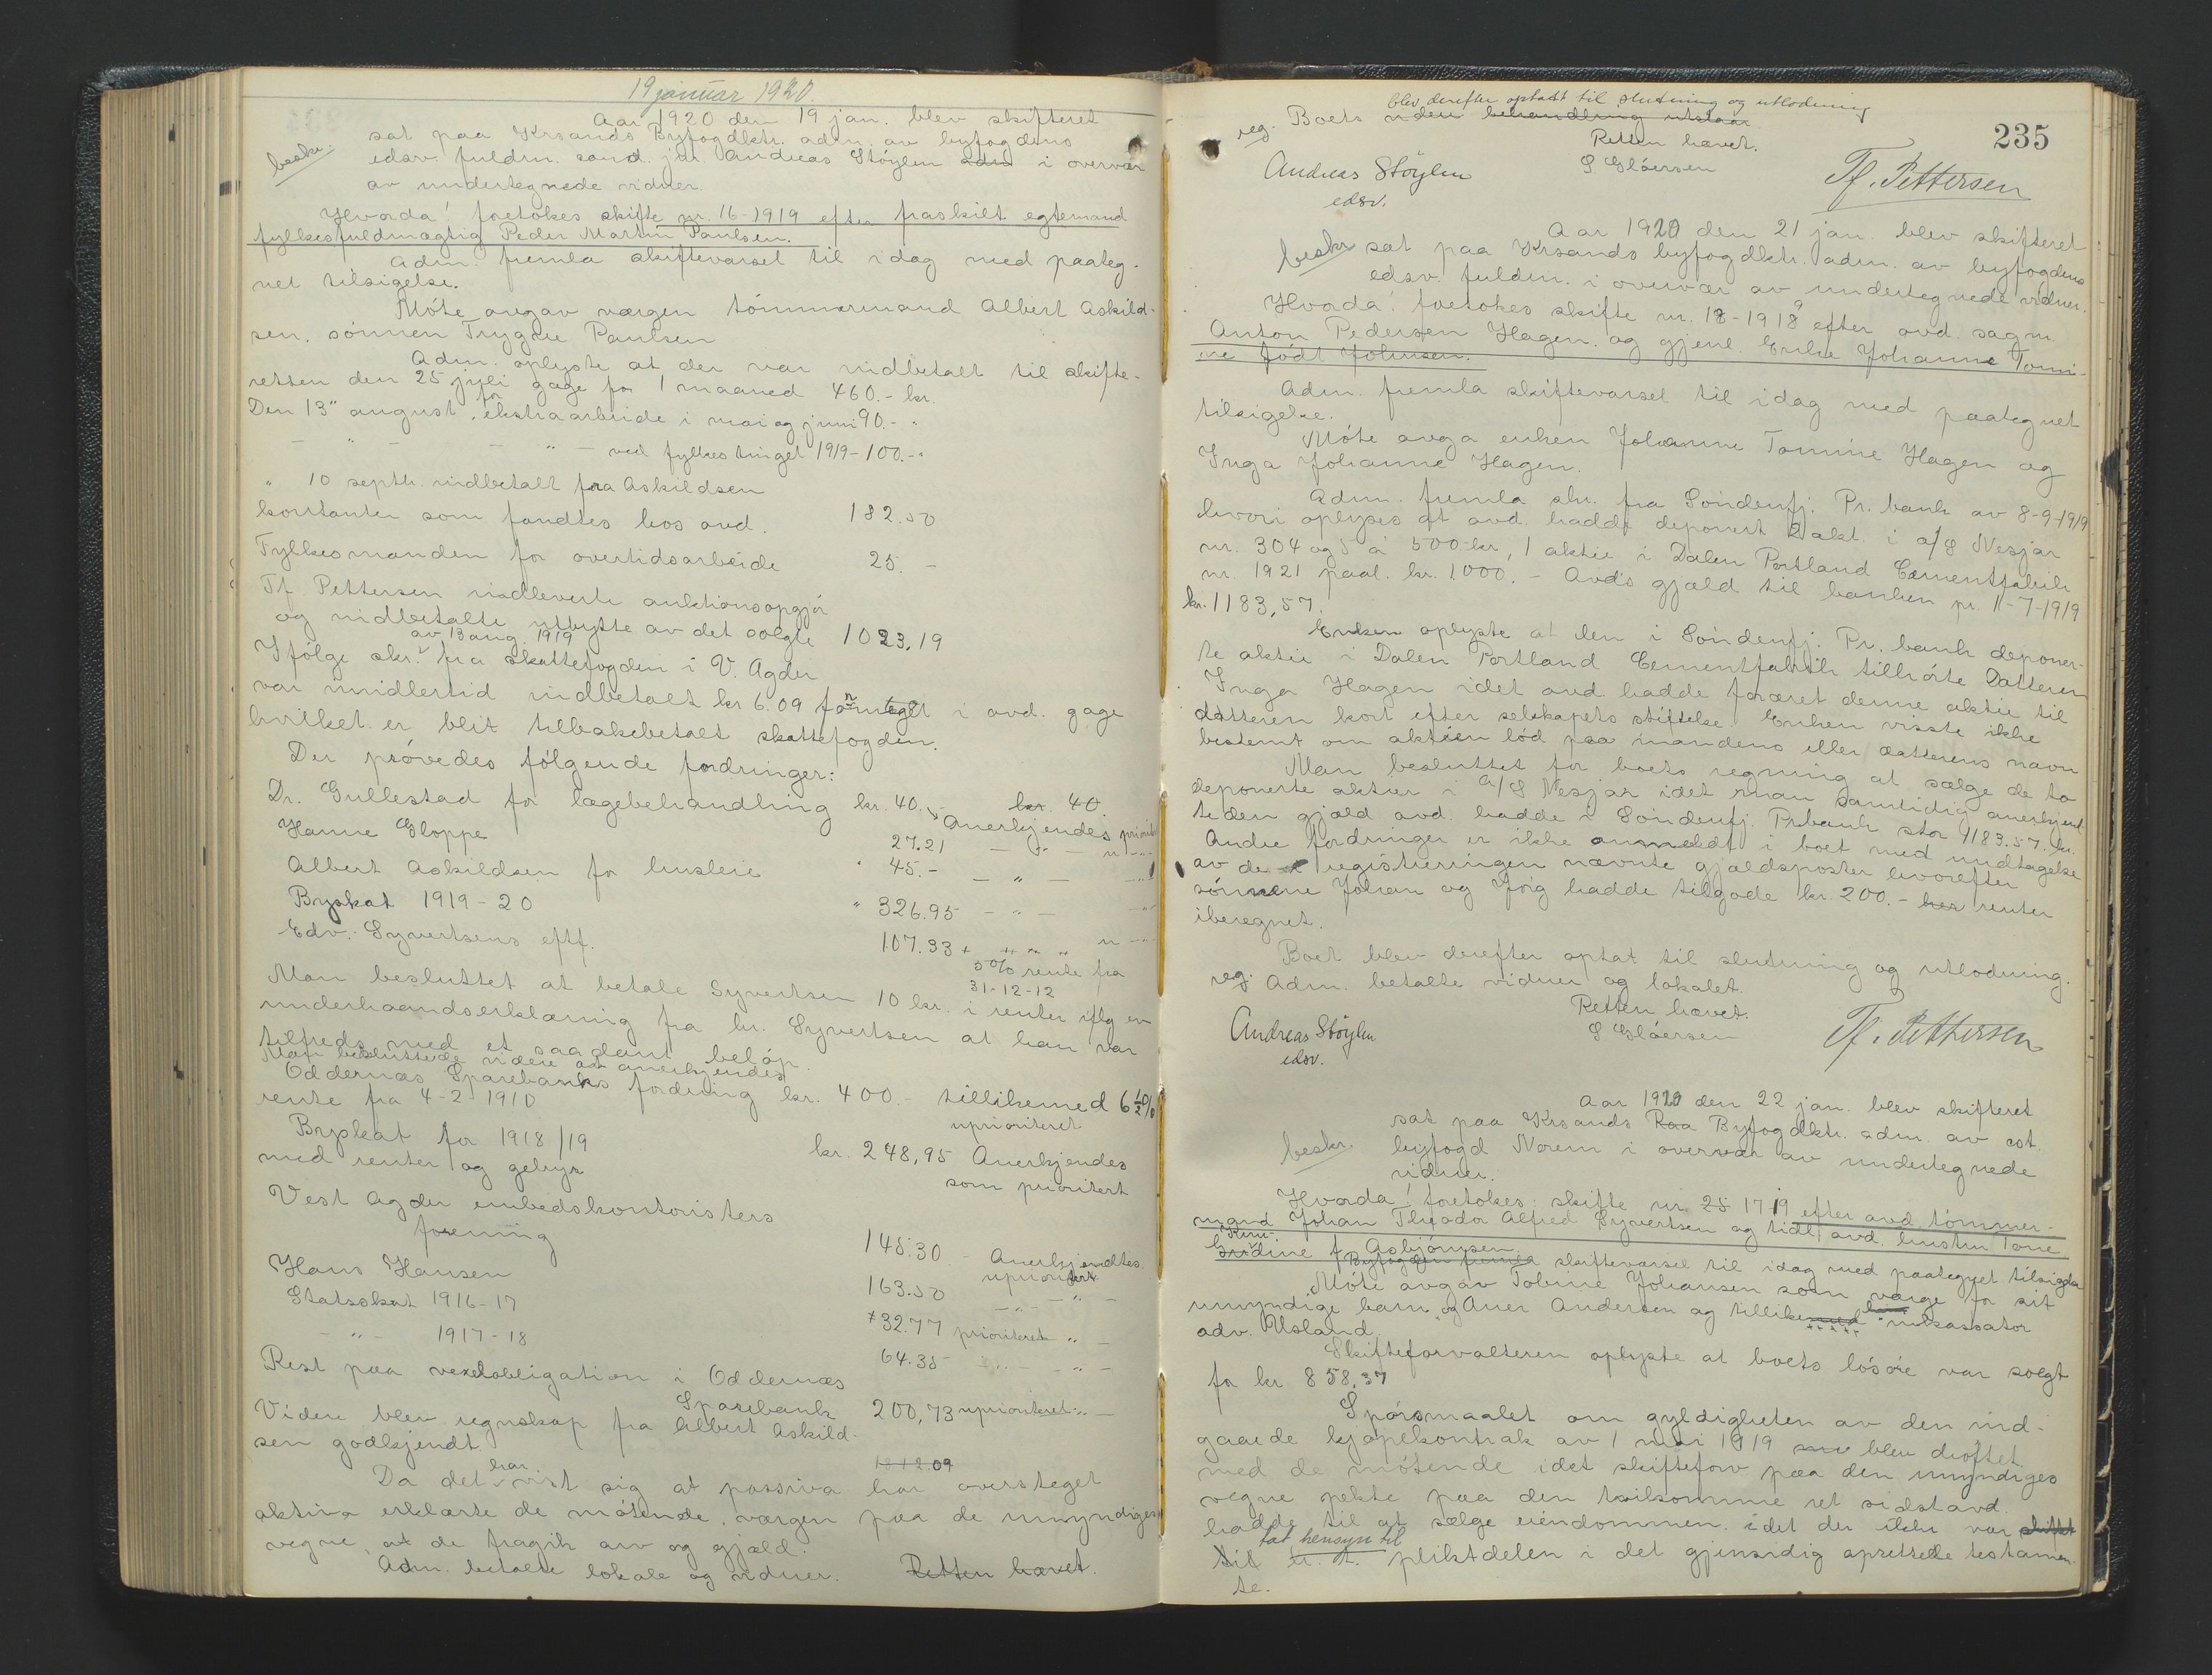 19 januar 1920.
Aar 1920 den 19 jan. blev skifteret
sat paa Krsands Byfogdktr. adm. av byfogdens
beskr. edsv. fuldm. cand. jur. Andreas Stöylen adm i overvær
av undertegnede vidner.
Hvorda! foretokes skifte nr. 16-1919 efter fraskilt egtemand
fylkesfuldmægtig Peder Martin Paulsen.
Adm. fremla skiftevarsel til idag med paateg-
net tilsigelse.
Möte avgav vergen tömmermand Albert Askild-
sen, sönnen Trygve Paulsen
Adm. oplyste at der var indbetalt til skifte-
retten den 25 juli gage for 1 maaned 460.- kr.
Den 13" august, for ekstraarbeide i mai og juni 90.- "
- " - - " - ved fylkestinget 1919 - 100.- "
" 10 septb. indbetalt fra Askildsen
kontanter som fandtes hos avd. 182.50
Fylkesmanden for overtidsarbeide 25.-
Tf Pettersen indleverte auktionsopgjör
og indbetalte utbytte av det solgte 1023,19
Ifölge skr. av 13 aug. 1919 fra skattefogden i V. Agder
var imidlertid indbetalt kr 6.09 formeget i avd. gage
hvilket er blit tilbakebetalt skattefogden.
Der prövedes fölgende fordringer:
Dr. Gullestad for lægebehandling kr. 40.- kr. 40.
Anerkjendes priorit
Hanne Gloppe 27.21 - " - u - " -
Albert Askildsen for husleie " 45.- - " - - " -
Byskat 1919-20 " 326.95 - " - - " -
Edv. Syvertsens eftf. 107.33 + " " " u - " -
5% rente fra
31-12-12
Man besluttet at betale Syvertsen 10 kr. i renter iflg en
underhaandserklæring fra hr. Syvertsen at han var
tilfreds med et saadant belöp.
Man besluttede videre at anerkjendes
Oddernæs Sparebanks fordring kr. 400.- tillikemed 6½%
rente fra 4-2-1910 uprioriteret
Byskat for 1918/19
med renter og gebyr kr. 248,95 Anerkjendes
som prioritert
Vest Agder embedskontoristers
forening 145.30 - Anerkjendtes
uprioritert
Hans Hansen 163.50 - " - " -
Statsskat 1916-17 + 32.77 prioriteret " -
- " - 1917-18 64.35 - " - - " -
Rest paa vexelobligation i Oddernæs
Sparebank 200,73 uprioriteret " -
Videre blev regnskap fra Albert Askild-
sen godkjendt
Da det har vist sig at passiva har oversteget
aktiva erklærte de mötende, vergen paa de umyndiges
vegne, at de fragik arv og gjæld.
Adm. betalte lokale og vidner. Retten hævet.
235
blev derefter optatt til slutning og utlodning
reg. Boets viden behandling utstaar
Retten hævet.
Andreas Stöylen S Glöersen Tf. Pettersen
edsv.
Aar 1920 den 21 jan. blev skifteret
beskr sat paa Krsands byfogdktr. adm. av byfogdens
edsv. fuldm. i overvær av undertegnede vidner.
Hvorda! foretokes skifte nr. 18-1919 efter avd. sagm.
Anton Pedersen Hagen og gjenl. Enke Johanne Tomi-
ne född Johnsen.
Adm. fremla skiftevarsel til idag med paategnet
tilsigelse.
Möte avga enken Johanne Tomine Hagen og
Inga Johanne Hagen.
Adm. fremla skr. fra Söndenfj: Pr. bank av 8-9-1919
hvori oplyses at avd. hadde deponert 2 akt. i a/s Nesjar
nr. 304 og 5 á 500 kr, 1 aktie i Dalen Portland Cementfabrik
nr. 1921 paal. kr. 1000.- Avd's gjæld til banken pr. 11-7-1919
kr. 1183,57.
Enken oplyste at den i Söndenfj: Pr. bank deponer-
te aktie i Dalen Portland Cementfabrik tilhörte Datteren
Inga Hagen idet avd. hadde foræret denne aktie til
datteren kort efter selskapets stiftelse. Enken visste ikke
bestemt om aktien löd paa mandens eller datterens navn
Man besluttet for boets regning at sælge de to
deponerte aktier i A/S Nesjar idet man samtidig anerkjend-
te den gjæld avd. hadde i Söndenfj. Prbank stor 1183.57 kr.
Andre fordringer er ikke anmeldt i boet med undtagelse
av de i registreringen nævnte gjældsposter hvorefter
sönnene Johan og Jörg hadde tilgode kr. 200.- her renter
iberegnet.
Boet blev derefter optat til slutning og utlodning.
reg. Adm. betalte vidner og lokalet.
Retten hævet.
Andreas Stöylen S Glöersen Tf. Pettersen
edsv.
Aar 1920 den 22 jan. blev skifteret
sat paa Krsands Raa Byfogdktr. adm. av cst.
beskr. byfogd Norem i overvær av undertegnede
vidner.
Hvorda! foretokes skifte nr. 25 1919 efter avd. tömmer-
mand Johan Theador Alfred Syvertsen og tidl. avd. hustru Tone
Gudine f. Asbjörnsen
Byfogden fremla skiftevarsel til idag med paategnet tilsigelse
Möte avgav Tobine Johansen som værge for sit
umyndige barn og Aner Andersen og tillikemed inkassator
adv. Usland.
Skifteforvalteren oplyste at boets lösöre var solgt
for kr 858,37
Spörsmaalet om gyldigheten av den ind-
gaaede kjöpekontrak av 1 mai 1919 blev dröftet
med de mötende idet skifteforv paa den umyndiges
vegne pekte paa den tvilsomme ret sidstavd.
hadde til at sælge eiendommen, idet der ikke var skiftet
tat hensyn til
til pliktdelen i det gjensidig oprettede testamen-
te.